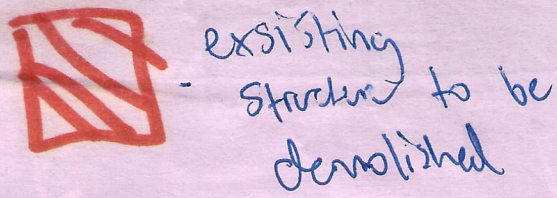 - exsisting
structure to be
demolished